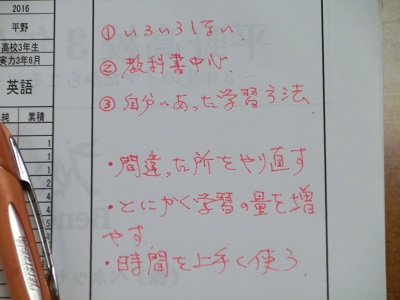 2016
平野
高校3年生
実力3年6月
英語
累積
1
1
1
1
2
① いろいろしない
② 教科書中心
③ 自分にあった学習方法
・間違った所をやり直す
・とにかく学習の量を増
やす
・時間を上手く使う